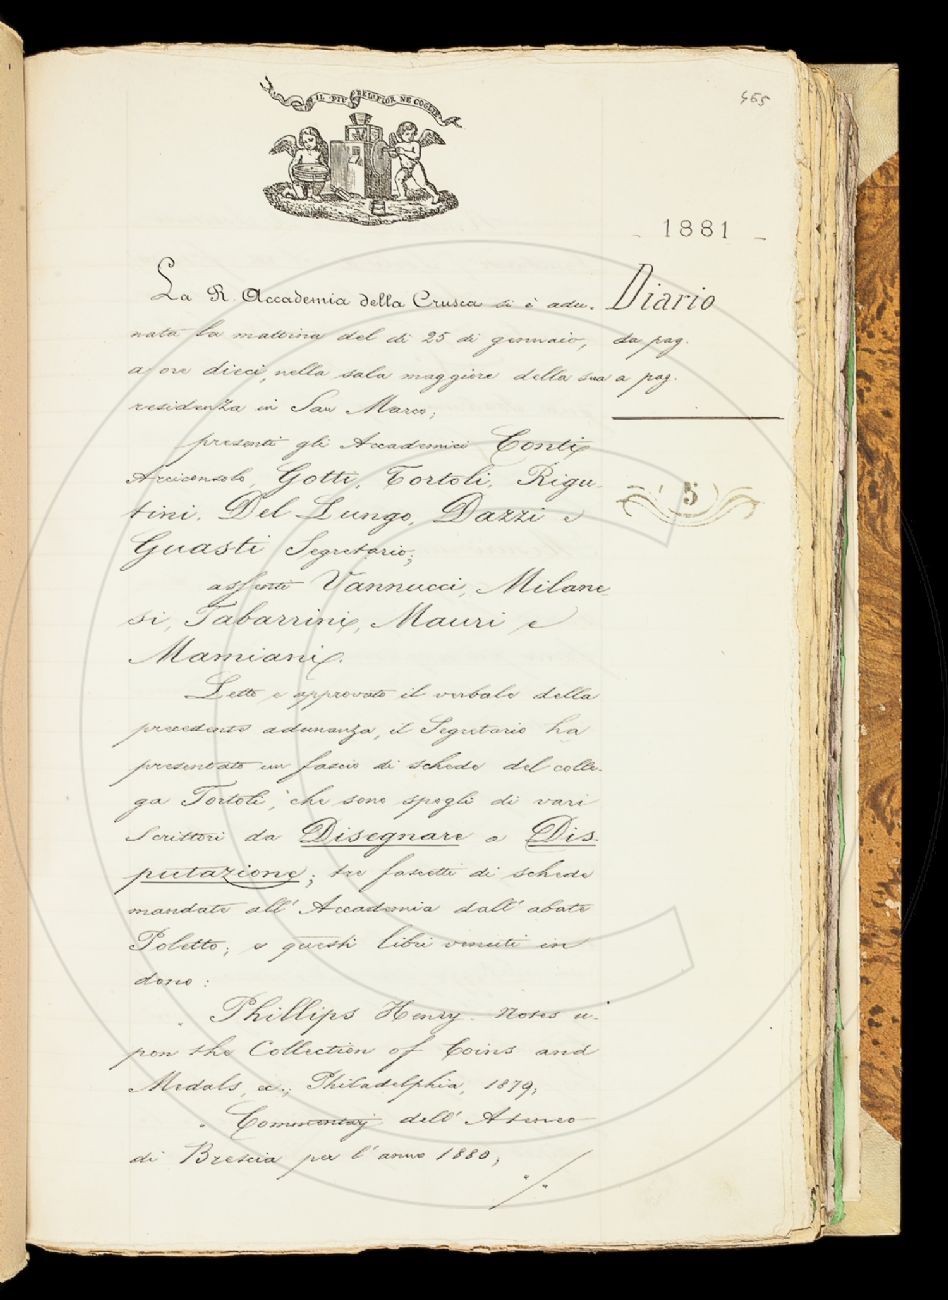 IL PIV BEL FIOR NE COGLIE
465
- 1881 -
Diario
da pag.
a pag.
5
La R. Accademia della Crusca si è adu-
nata la mattina del dì 25 di gennaio,
a ore dieci, nella sala maggiore della sua
residenza in San Marco;
presenti gli Accademici Conti
Arciconsolo, Gotti, Tortoli, Rigu-
tini, Del Lungo, Dazzi e
Guasti Segretario;
assenti Vannucci, Milane-
si, Tabarrini, Mauri e
Mamiani.
Letto e approvato il verbale della
precedente adunanza, il Segretario ha
presentato un fascio di schede del colle-
ga Tortoli, che sono spogli di vari
Scrittori da Disegnare a Dis-
putazione; tre fascetti di schede
mandate all'Accademia dall'abate
Poletto; e questi libri venuti in
dono:
" Phillips Henry. Notes u-
pon the Collection of Coins and
Medals, &.; Philadelphia, 1879;
" Commentarj dell'Ateneo
di Brescia per l'anno 1880;
"/"